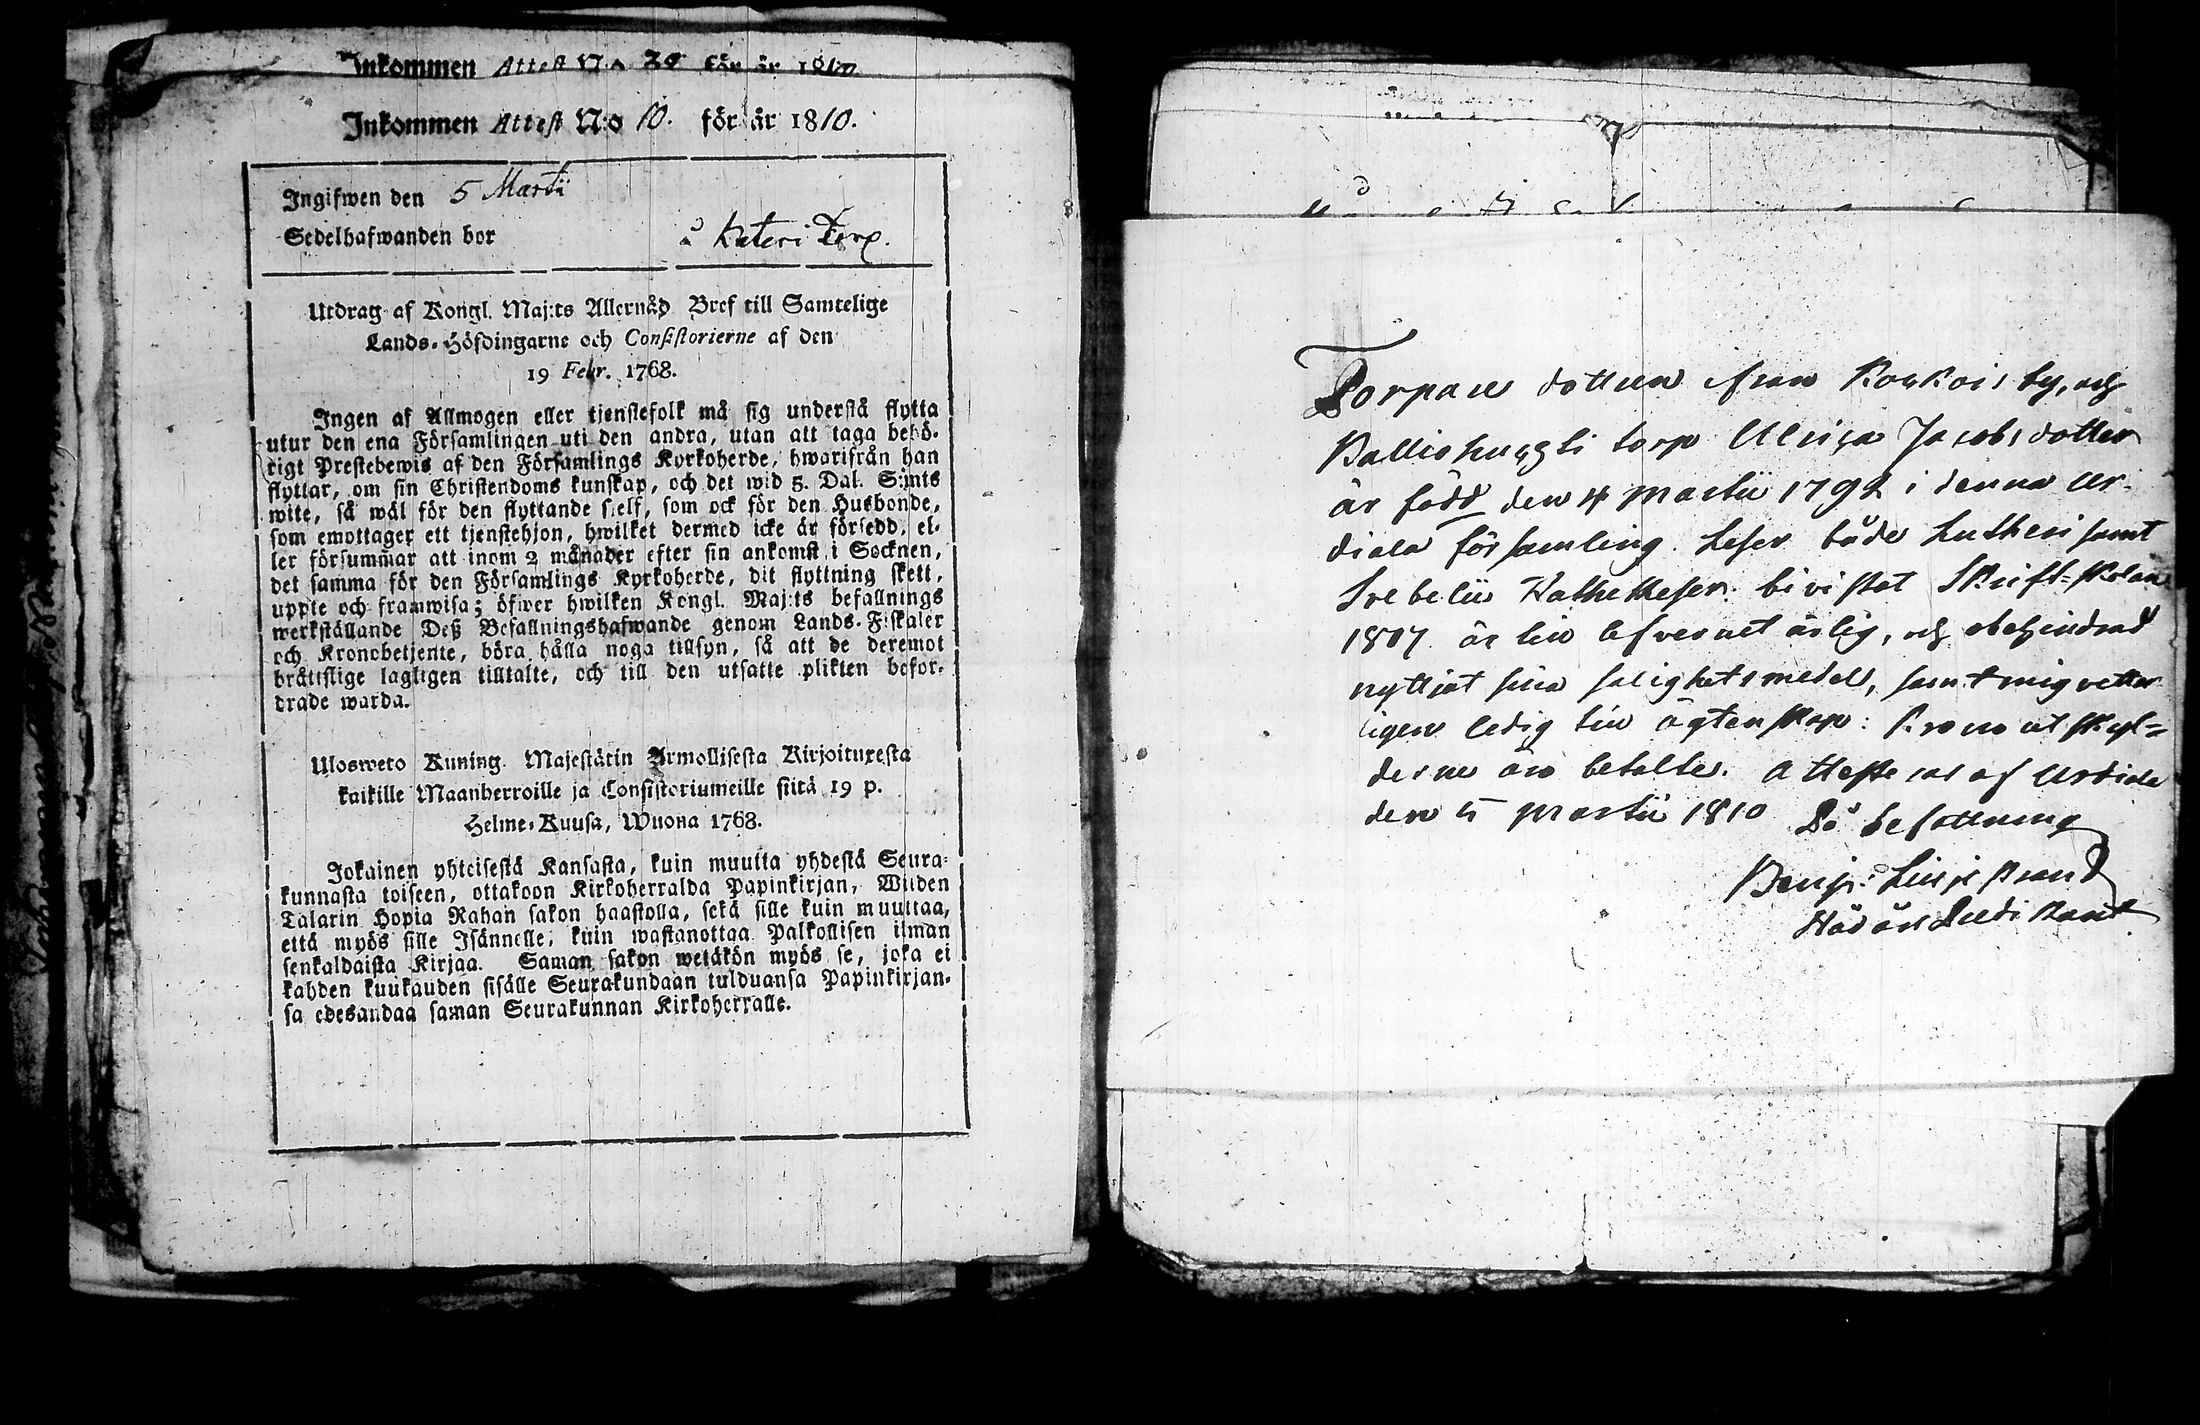 Inkommen Attest N:o för år 1810
Inkommen Attest N:o 10. för år 1810.
Ingifwen den 5 Martii
Sedelhafwanden bor å Kateri Torp.
Utdrag af Kongl. Maj:ts Allernåd Bref till Samtelige
Lands-Höfdingarne och Consistorierne af den
19 Febr. 1768.
Ingen af Allmogen eller tjenstefolk må sig understå flytta
utur den ena Församlingen uti den andra, utan att taga behö-
rigt Prestebewis af den Församlings Kyrkoherde, hwarifrån han
flyttar, om sin Christendoms kunskap, och det wid 5. Dal. S:mts
wite, så wäl för den flyttande sjelf, som ock för den Husbonde,
som emottager ett tjenstehjon, hwilket dermed icke är försedd, el-
ler försummar att inom 2 månader efter sin ankomst i Socknen,
det samma för den Församlings Kyrkoherde, dit flyttning skett,
uppte och framwisa; öfwer hwilken Kongl. Maj:ts befallnings
werkställande Deß Befallningshafwande genom Lands-Fiskaler
och Kronobetjente, böra hålla noga tillsyn, så att de deremot
bråttslige lagligen tilltalte, och till den utsatte plikten befor-
drade warda.
Ulosweto Kuning. Majestätin Armollisesta Kirjoituxesta
kaikille Maanherroille ja Consistoriumeille siitä 19 p.
Helme-Kuusa, Wuona 1768.
Jokainen yhteisestä Kansasta, kuin muutta yhdestä Seura-
kunnasta toiseen, ottakoon Kirkoherralda Papinkirjan, Wiiden
Talarin Hopia Rahan sakon haastolla, sekä sille kuin muuttaa,
että myös sille Isännelle, kuin wastanottaa Palkollisen ilman
senkaldaista Kirjaa. Saman sakon wetäkön myös se, joka ei
kahden kuukauden sisälle Seurakundaan tulduansa Papinkirjan-
sa edesandaa saman Seurakunnan Kirkoherralle.
Torpare dottren ifrån Koskois by, och
torp Ulrica Jacobs dotter
är född den 4 Martii 1792 i denna Ur-
diala församling. Läser både Lutheri samt
Svebelii Kathekeser. bivistat Skrift-skolan
1807. är till lefvernet ärlig, och obehindrad
nyttjat sina salighetsmedel, samt mig vetter
ligen ledig till ägtenskap: Krono utskyl=
derne äro betalte. Attesteras af Urdiala
den 5 Martii 1810 På befallning
Benj: